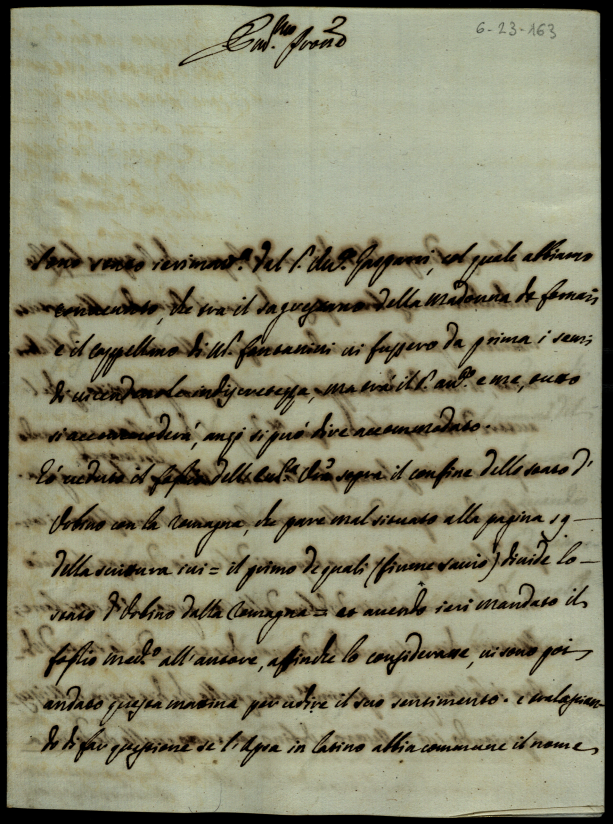 6-23-163
Em.mo
sera dal S.r Aud.r Gasparri, col quale abbiamo
convenuto, che tra il sagrestano della Madonna de fornari
e il cappellano di M.r Fontanini vi fussero da prima i semi
di vicendevole indiscretezza, ma tra il S.r Aud.r e me, tutto
si accommoderà, anzi si può dire accommodato.
Hò veduto il foglio dell' sopra il confine dello stato d'
Urbino con la Romagna, che pare mal situato alla pagina 59
della scrittura ivi = il primo de quali (fiume Savio) divide lo
stato d'Urbino dalla Romagna = et avendo ieri mandato il
foglio med.o all'autore, affinche lo considerasse, vi sono poi
andato questa mattina per udire il suo sentimento. e tralascian-
do di far questione se l'Apsa in latino abbia commune il nome